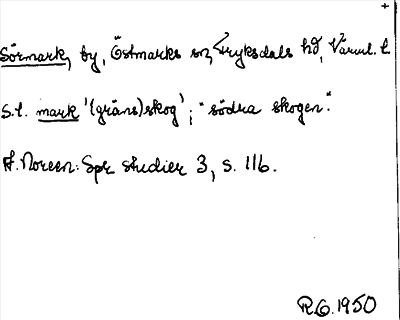 +
Sörmark, by, Östmarks sn, Fryksdals hd, Värml. l.
S.l. mark '(gräns)skog'; "södra skogen".
A. Noreen: Spr studier 3, s. 116.
R.G. 1950